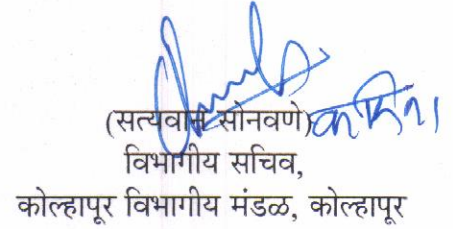 (सत्यवान सोनवणे)
विभागीय सचिव,
कोल्हापूर विभागीय मंडळ, कोल्हापूर